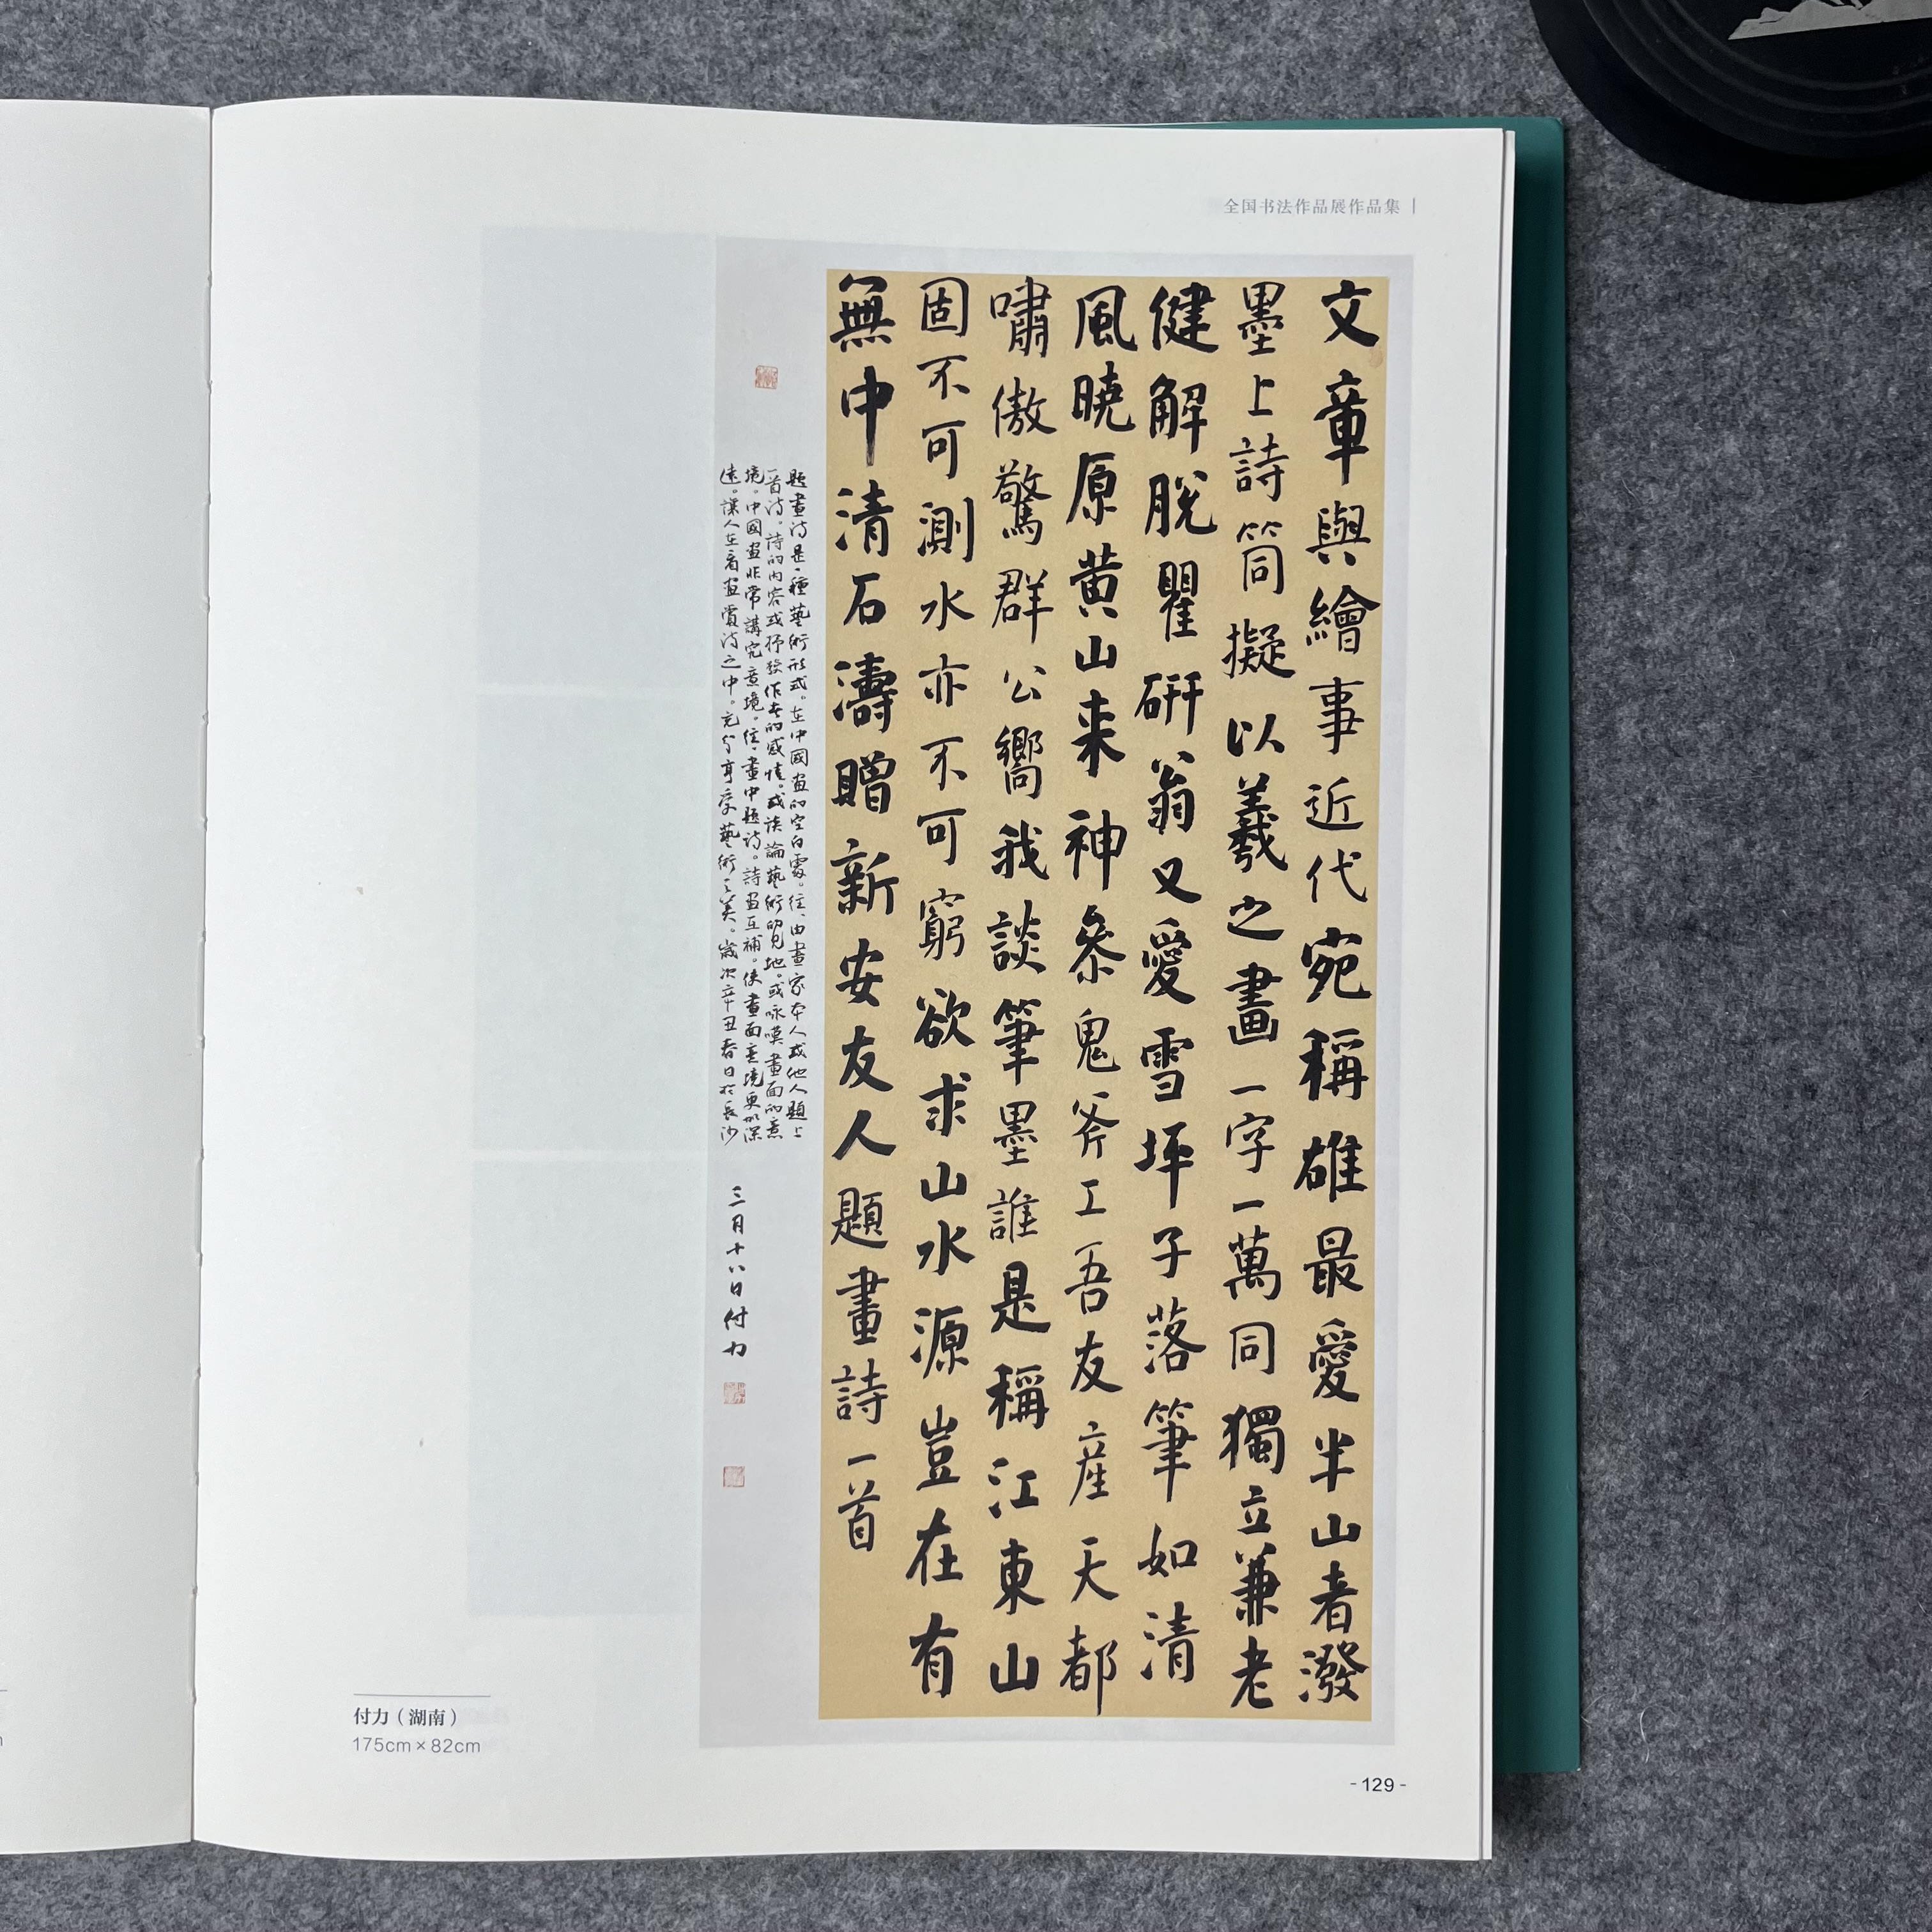 全国书法作品展作品集
文章與繪事近代宛稱雄最愛半山者潑
墨上詩筒擬以羲之畫一字一萬同獨立兼老
健解脫瞿硎翁又愛雪坪子落筆如清
風曉原黄山来神參鬼斧工吾友産天都
嘯傲驚群公嚮我談筆墨誰是稱江東山
固不可測水亦不可窮欲求山水源豈在有
無中清石濤贈新安友人題畫詩一首
題畫詩是一種藝術形式。在中國画的空白處。往、由畫家本人或他人題上
一首詩。詩的内容或抒發作者的感情。或談論藝術的見地。或咏嘆畫面的意
境。中國画非常講究意境。往、畫中題詩。詩画互補。使畫面意境更加深
遠。讓人在看画賞詩之中。充分享受藝術之美。歲次辛丑春日於長沙
三月十八日付力
付力（湖南）
175cm×82cm
-129-